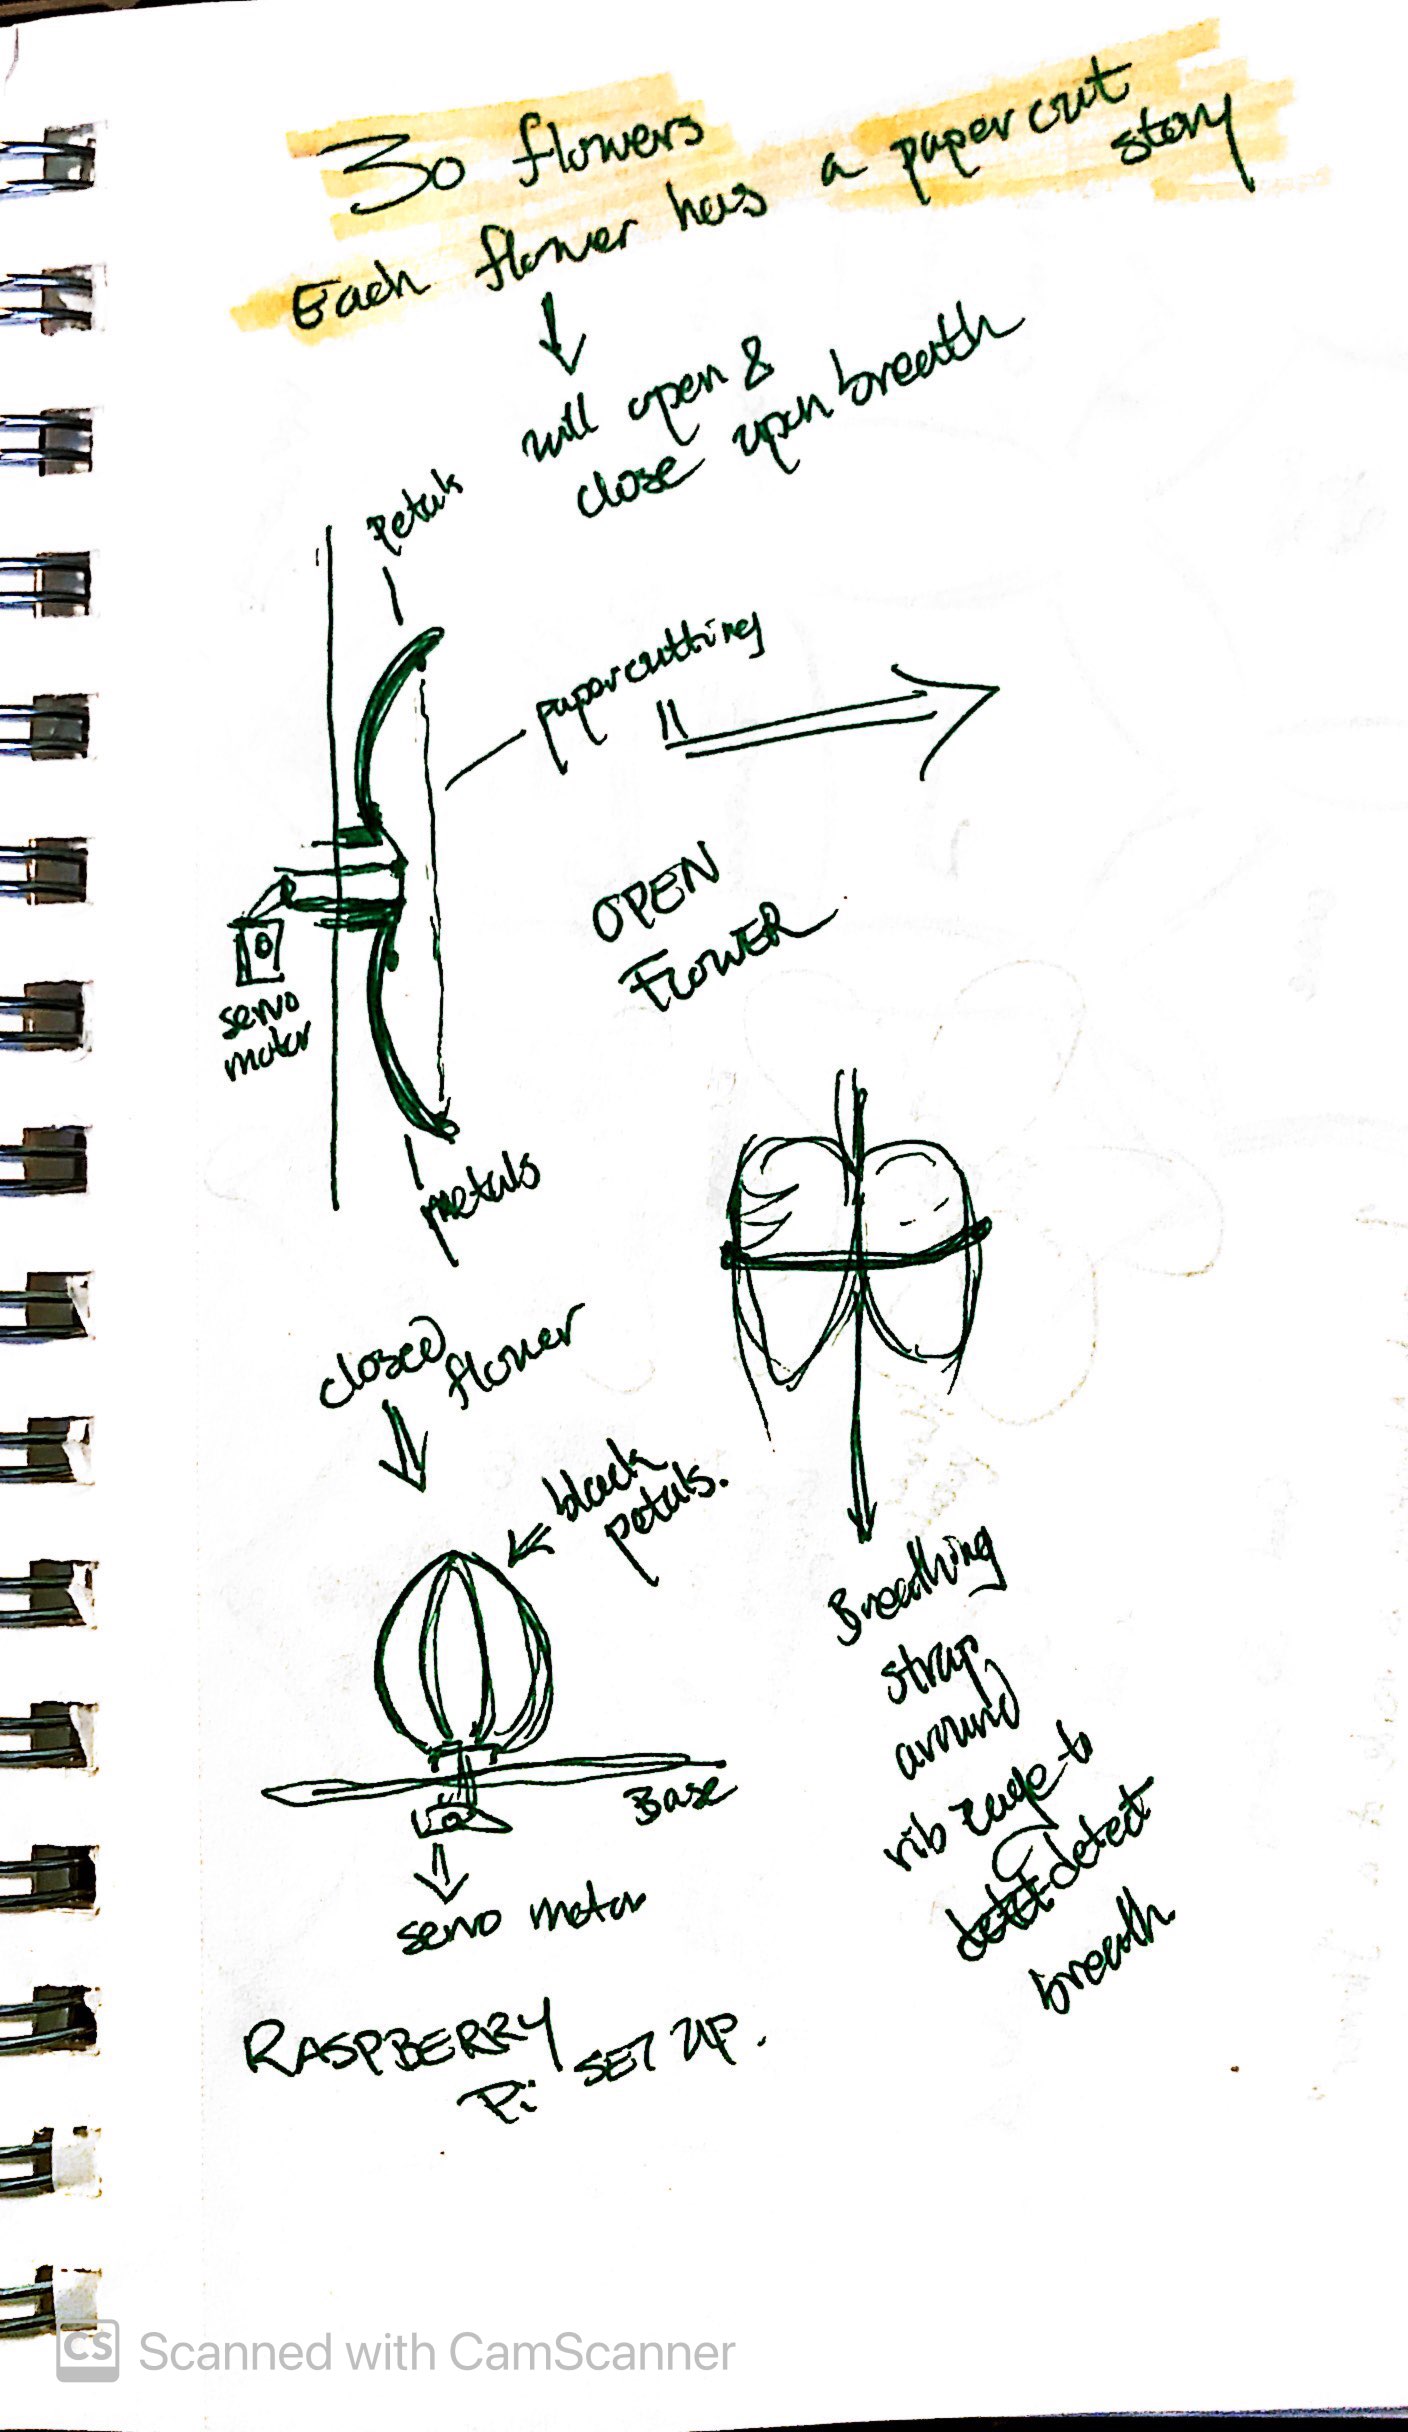 30 flowers
Each flower has a papercut
story
will open &
close upon breath
Petals
papercutting
OPEN
FLOWER
servo
motor
petals
closed
flower
black
petals.
Base
servo motor
RASPBERRY
Pi SET UP.
Breathing
strap
around
rib cage to
detect
breath
CS Scanned with CamScanner